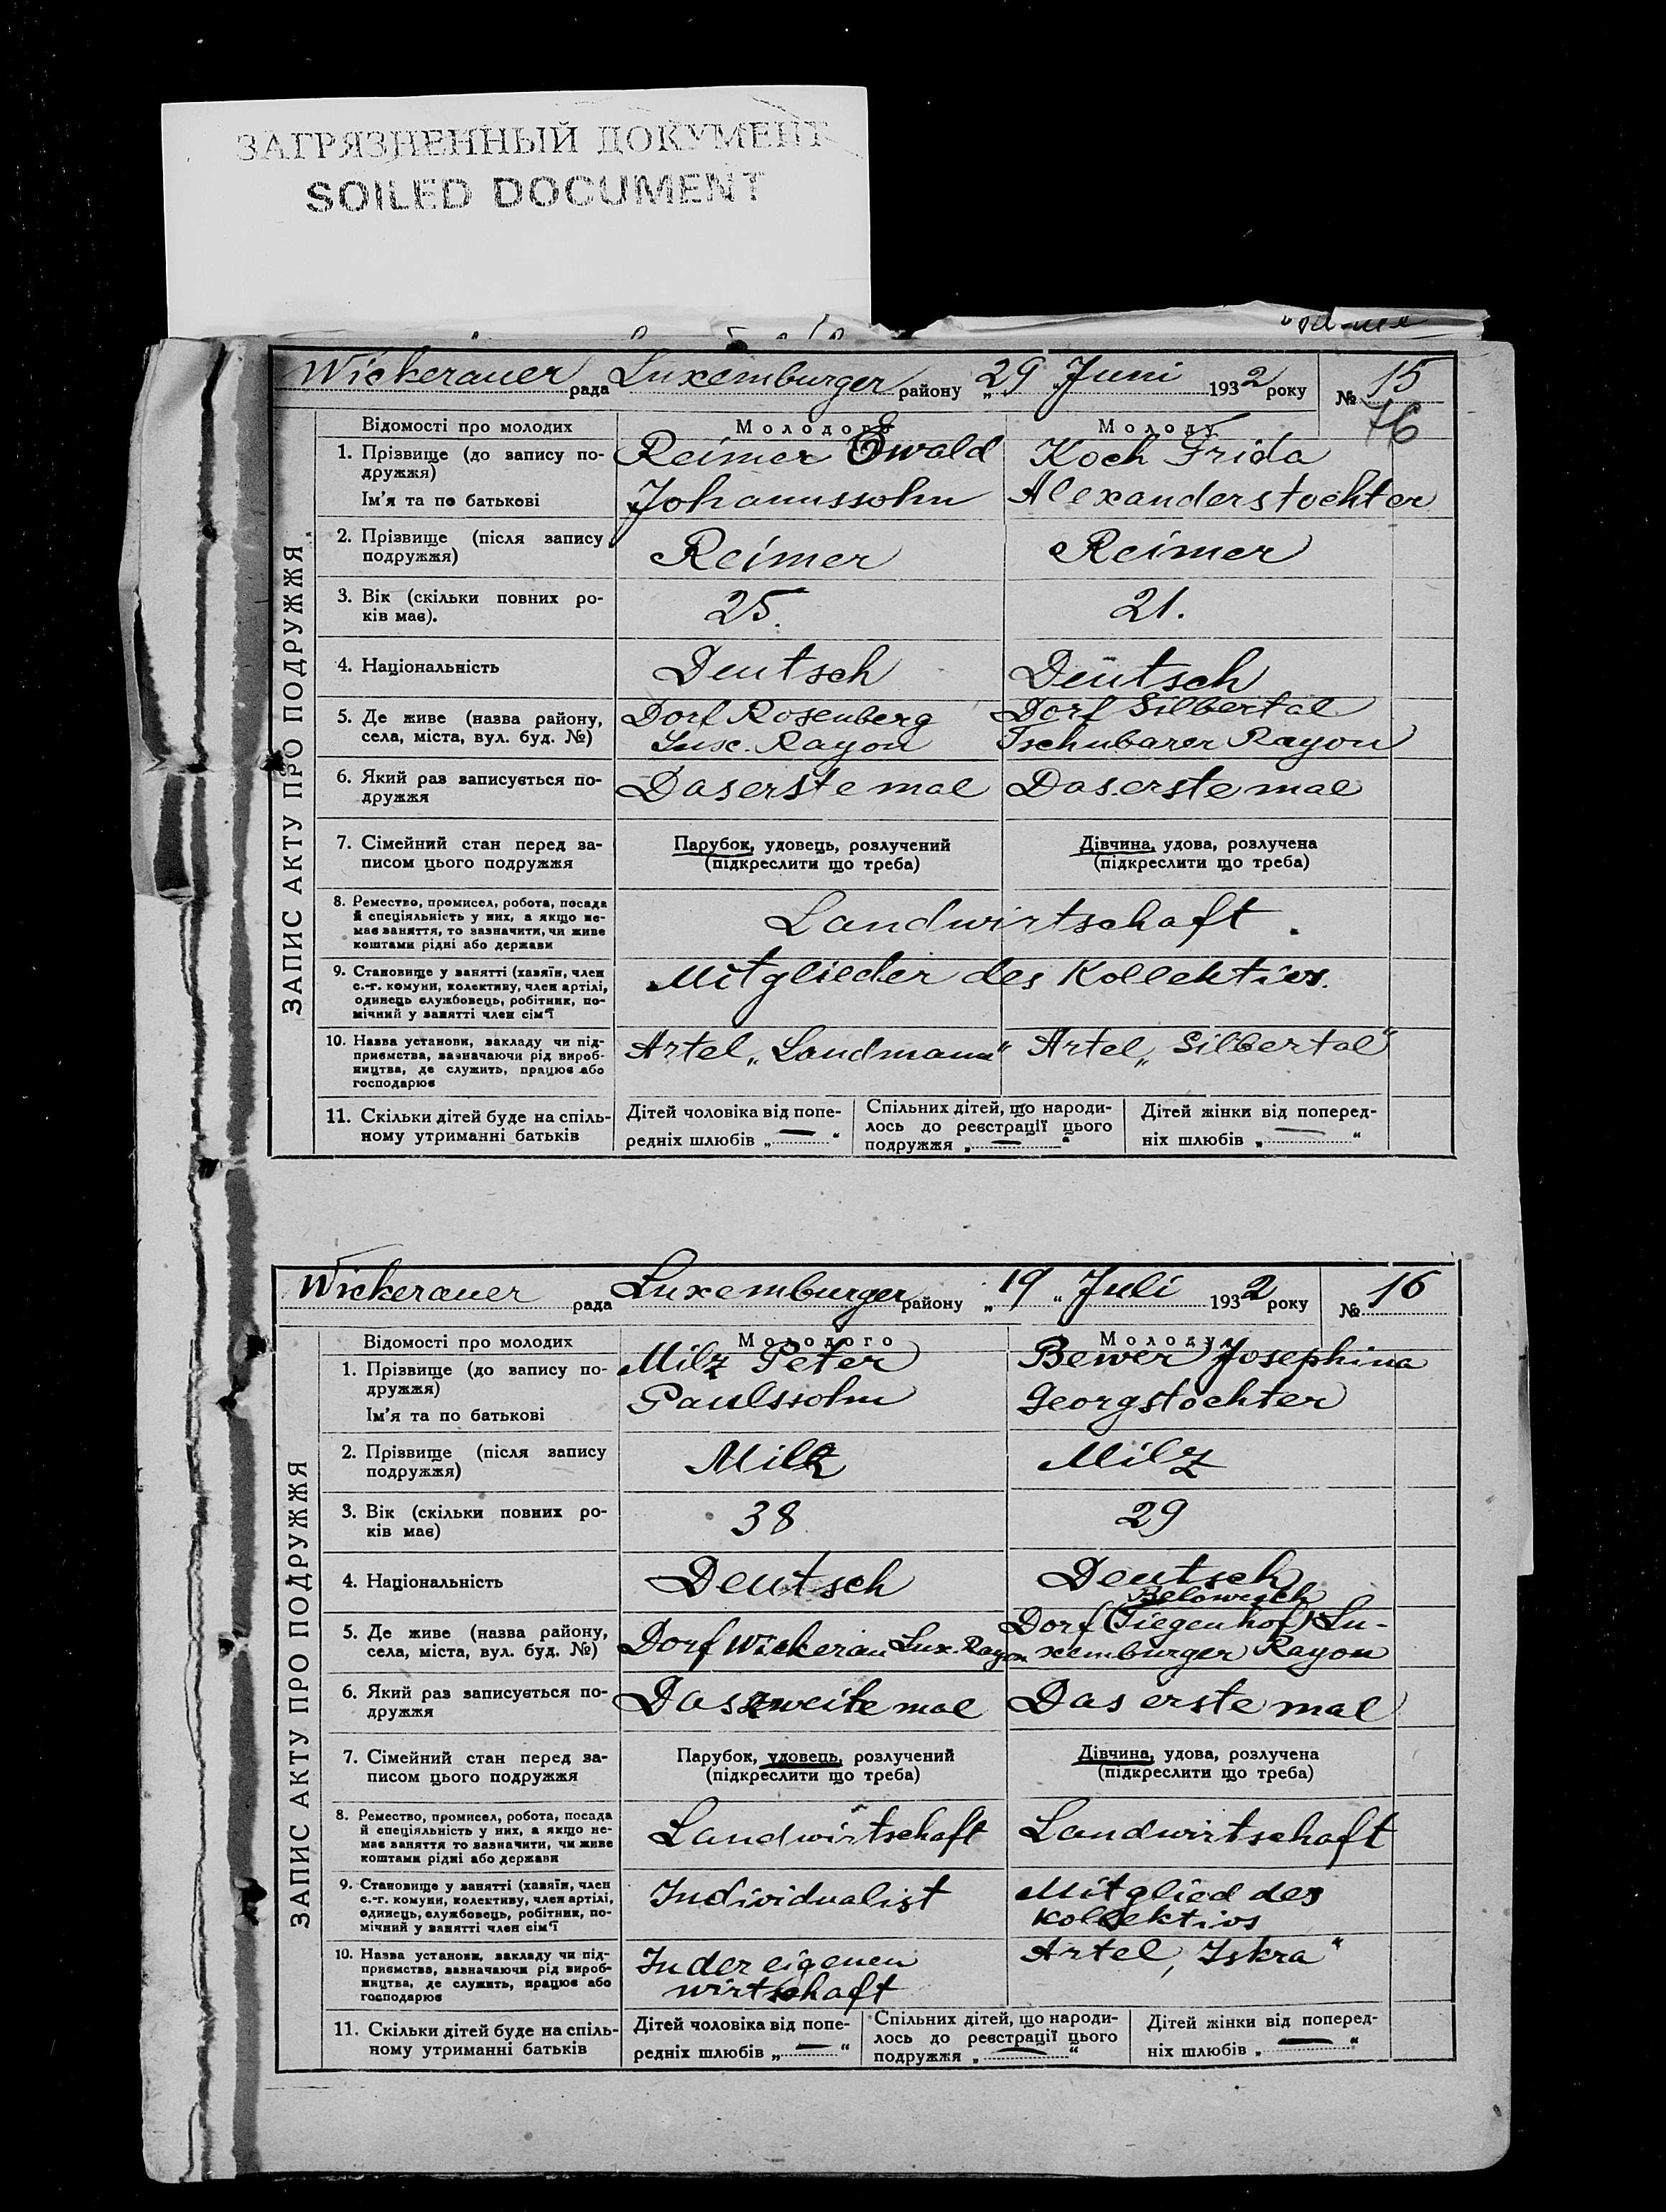 ЗАГРЯЗНЕННЫЙ ДОКУМЕНТ
SOILED DOCUMENT
Wickerauer рада Luxemburger району „29 Juni 1932 року № 15
76
ЗАПИС АКТУ ПРО ПОДРУЖЖЯ
Відомості про молодих Молодого Молоду
1. Прізвище (до запису по- Reimer Ewald Koch Frida
дружжя)
Ім'я та по батькові Johannssohn Alexanderstochter
2. Прізвище (після запису Reimer Reimer
подружжя)
3. Вік (скільки повних ро- 25. 21.
ків має).
4. Національність Deutsch Deutsch
5. Де живе (назва району, Dorf Rosenberg Dorf Silbertal
села, міста, вул. буд. №) Lux. Rayon Tschubarer Rayon
6. Який раз записується по- Das erste mal Das erste mal
дружжя
7. Сімейний стан перед за- Парубок, удовець, розлучений Дівчина, удова, розлучена
писом цього подружжя (підкреслити що треба) (підкреслити що треба)
8. Ремество, промисел, робота, посада
й спеціяльність у них, а якщо не- Landwirtschaft.
має заняття, то зазначити, чи живе
коштами рідні або держави
9. Становище у занятті (хазяїн, член Mitglieder des Kollektivs.
с.-г. комуни, колективу, член артілі,
одинець службовець, робітник, по-
мічний у занятті член сім'ї
10. Назва установи, закладу чи під- Artel „Landmann“ Artel „Silbertal“
приємства, зазначаючи рід вироб-
ництва, де служить, працює або
господарює
11. Скільки дітей буде на спіль- Дітей чоловіка від попе- Спільних дітей, що народи- Дітей жінки від поперед-
ному утриманні батьків редніх шлюбів „—“ лось до реєстрації цього ніх шлюбів „—“
подружжя „—“
Wickerauer рада Luxemburger району „19“ Juli 1932 року № 16
ЗАПИС АКТУ ПРО ПОДРУЖЖЯ
Відомості про молодих Молодого Молоду
1. Прізвище (до запису по- Milz Peter Bewer Josephina
дружжя) Paulssohn Georgstochter
Ім'я та по батькові
2. Прізвище (після запису Milz Milz
подружжя)
3. Вік (скільки повних ро- 38 29
ків має)
4. Національність Deutsch Deutsch
Belowesch
5. Де живе (назва району, Dorf Wickerau Lux. Rayon Dorf (Tiegenhof) Lu-
села, міста, вул. буд. №) xemburger Rayon
6. Який раз записується по- Das zweite mal Das erste mal
дружжя
7. Сімейний стан перед за- Парубок, удовець, розлучений Дівчина, удова, розлучена
писом цього подружжя (підкреслити що треба) (підкреслити що треба)
8. Ремество, промисел, робота, посада
й спеціяльність у них, а якщо не- Landwirtschaft Landwirtschaft
має заняття то зазначити, чи живе
коштами рідні або держави
9. Становище у занятті (хазяїн, член Individualist Mitglied des
с.-г. комуни, колективу, член артілі, Kollektivs
одинець, службовець, робітник, по-
мічний у занятті член сім'ї
10. Назва установи, закладу чи під- In der eigenen Artel „Iskra“
приємства, зазначаючи рід вироб- wirtschaft
ництва, де служить, працює або
господарює
11. Скільки дітей буде на спіль- Дітей чоловіка від попе- Спільних дітей, що народи- Дітей жінки від поперед-
ному утриманні батьків редніх шлюбів „—“ лось до реєстрації цього ніх шлюбів „—“
подружжя „—“